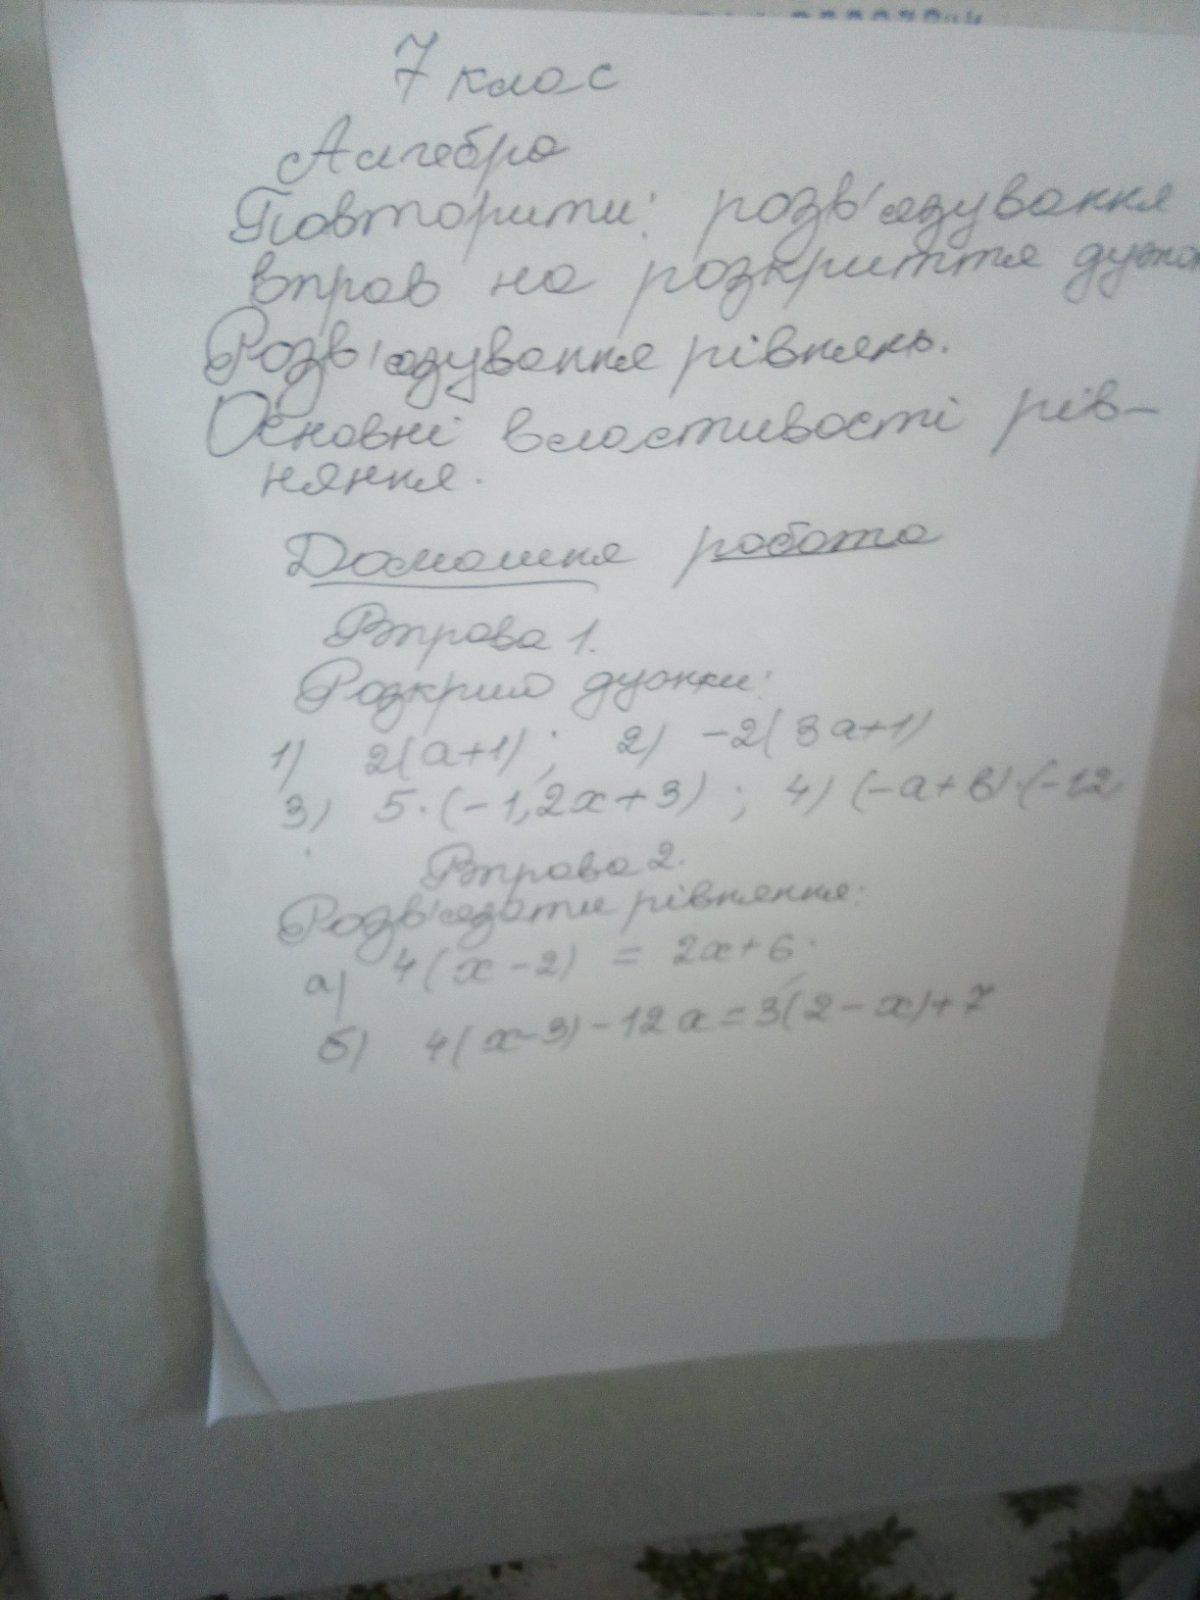 7 клас
Алгебра
Повторити: розв'язування
вправ на розкриття дужок
Розв'язування рівнянь.
Основні властивості рів-
няння.
Домашня робота
Вправа 1.
Розкрий дужки:
1) 2(a+1); 2) -2(3a+1)
3) 5·(-1,2x+3); 4) (-a+b)·(-12
Вправа 2.
Розв'язати рівняння:
а) 4(x-2) = 2x+6.
б) 4(x-3)-12x=3(2-x)+7